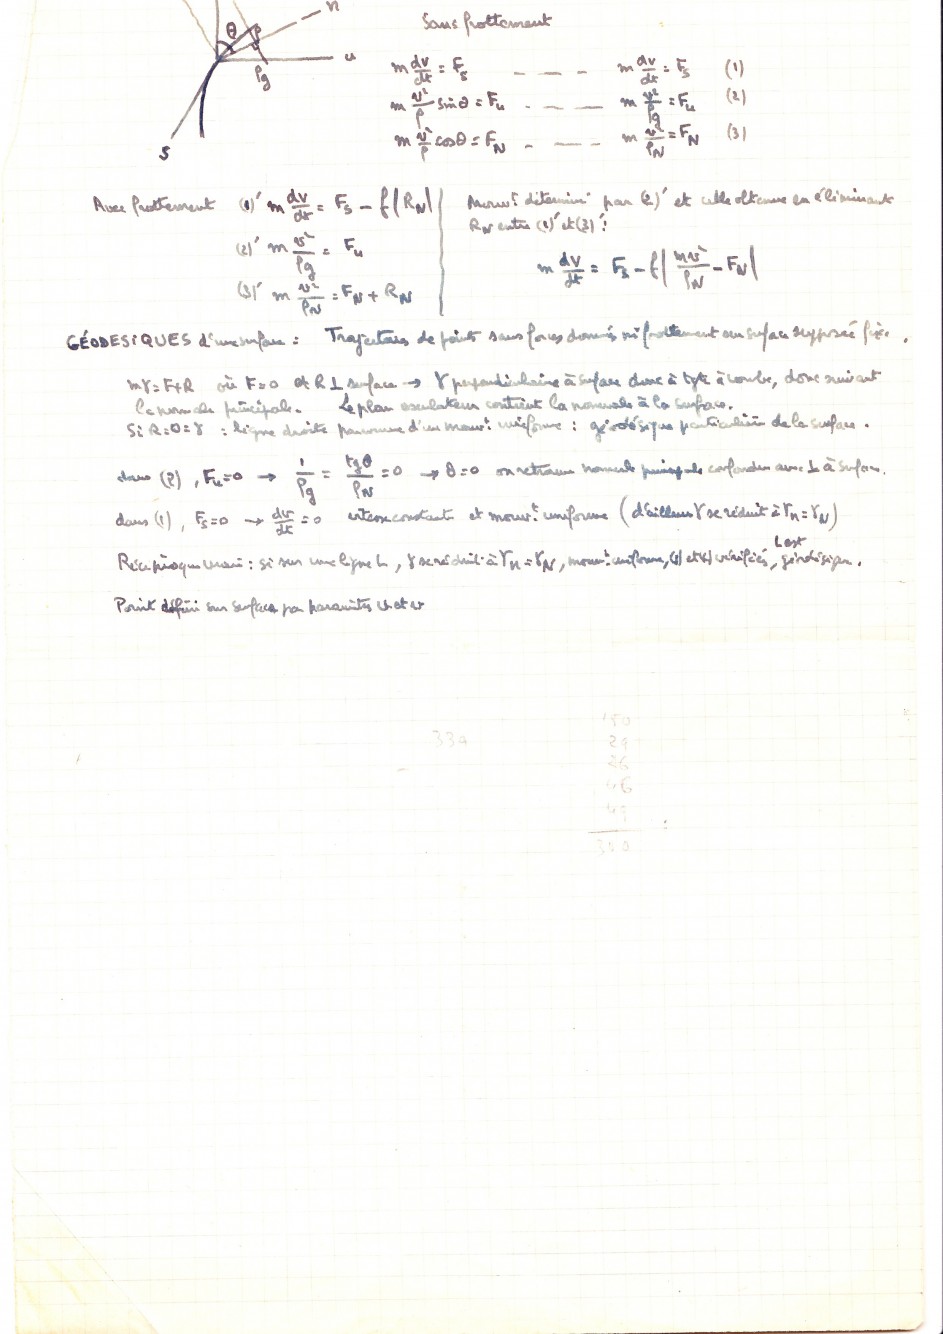 n
θ
ρ
u
ρg
s
Sans frottement
m dv/dt = Fs - - - - m dv/dt = Fs (1)
m v²/ρ sinθ = Fu - - - - m v²/ρg = Fu (2)
m v²/ρ cosθ = FN - - - - m v²/ρN = FN (3)
Avec frottement (1)' m dv/dt = Fs - f|RN|
(2)' m v²/ρg = Fu
(3)' m v²/ρN = FN + RN
Mouvt déterminé par (2)' et celle obtenue en éliminant
RN entre (1)' et (3)' :
m dv/dt = Fs - f| mv²/ρN - FN |
GÉODESIQUES d'une surface : Trajectoires de points sans forces données ni frottement sur surface supposée fixe.
mγ = F+R où F=0 et R ⊥ surface → γ perpendiculaire à surface donc à tgte à courbe, donc suivant
la normale principale. Le plan osculateur contient la normale à la surface.
Si R=0=γ : ligne droite parcourue d'un mouvt uniforme : géodésique particulière de la surface.
dans (2), Fu=0 → 1/ρg = tgθ/ρN = 0 → θ=0 on retrouve normale principale confondue avec ⊥ à surface.
dans (1), Fs=0 → dv/dt = 0 vitesse constante et mouvt uniforme (d'ailleurs γ se réduit à γn = γN)
Réciproque vraie : si sur une ligne L, γ se réduit à γn = γN, mouvt uniforme, (1) et (2) vérifiés, L est géodésique.
Point défini sur surface par paramètres u et v
334
150
29
26
46
49
300